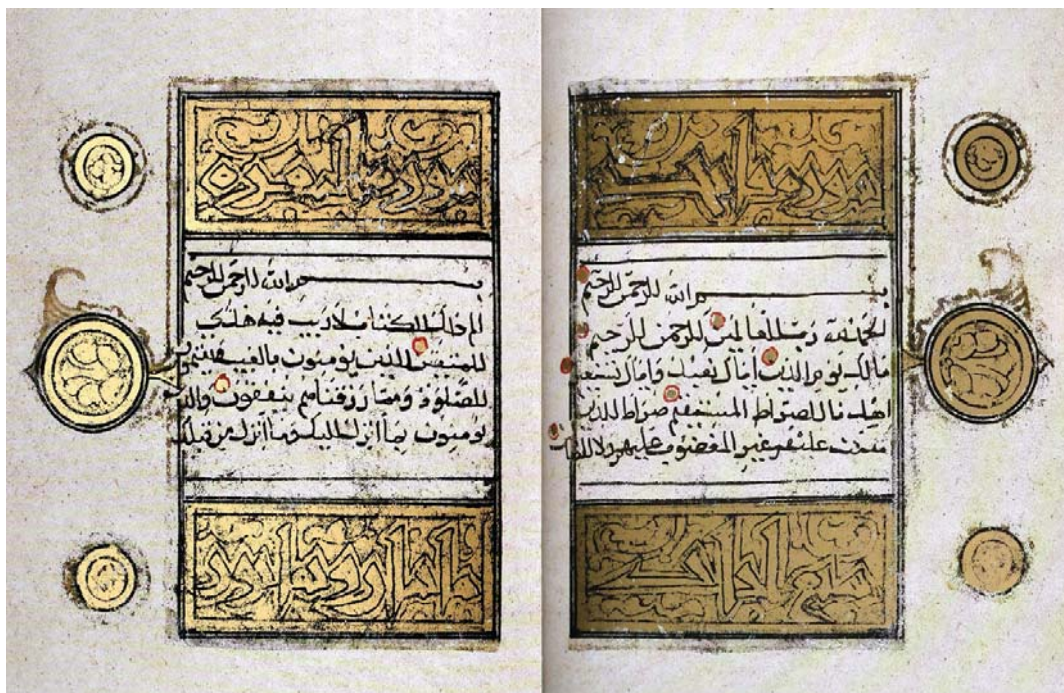 بسم الله الرحمن الرحيم
الحمد لله رب العالمين الرحمن الرحيم
مالك يوم الدين إياك نعبد وإياك نستعين
اهدنا الصراط المستقيم صراط الذين
أنعمت عليهم غير المغضوب عليهم ولا الضالين
سورة البقرة
بسم الله الرحمن الرحيم
الم ذلك الكتاب لا ريب فيه هدى
للمتقين الذين يؤمنون بالغيب ويقيمون
الصلوة ومما رزقناهم ينفقون والذين
يؤمنون بما أنزل إليك وما أنزل من قبلك